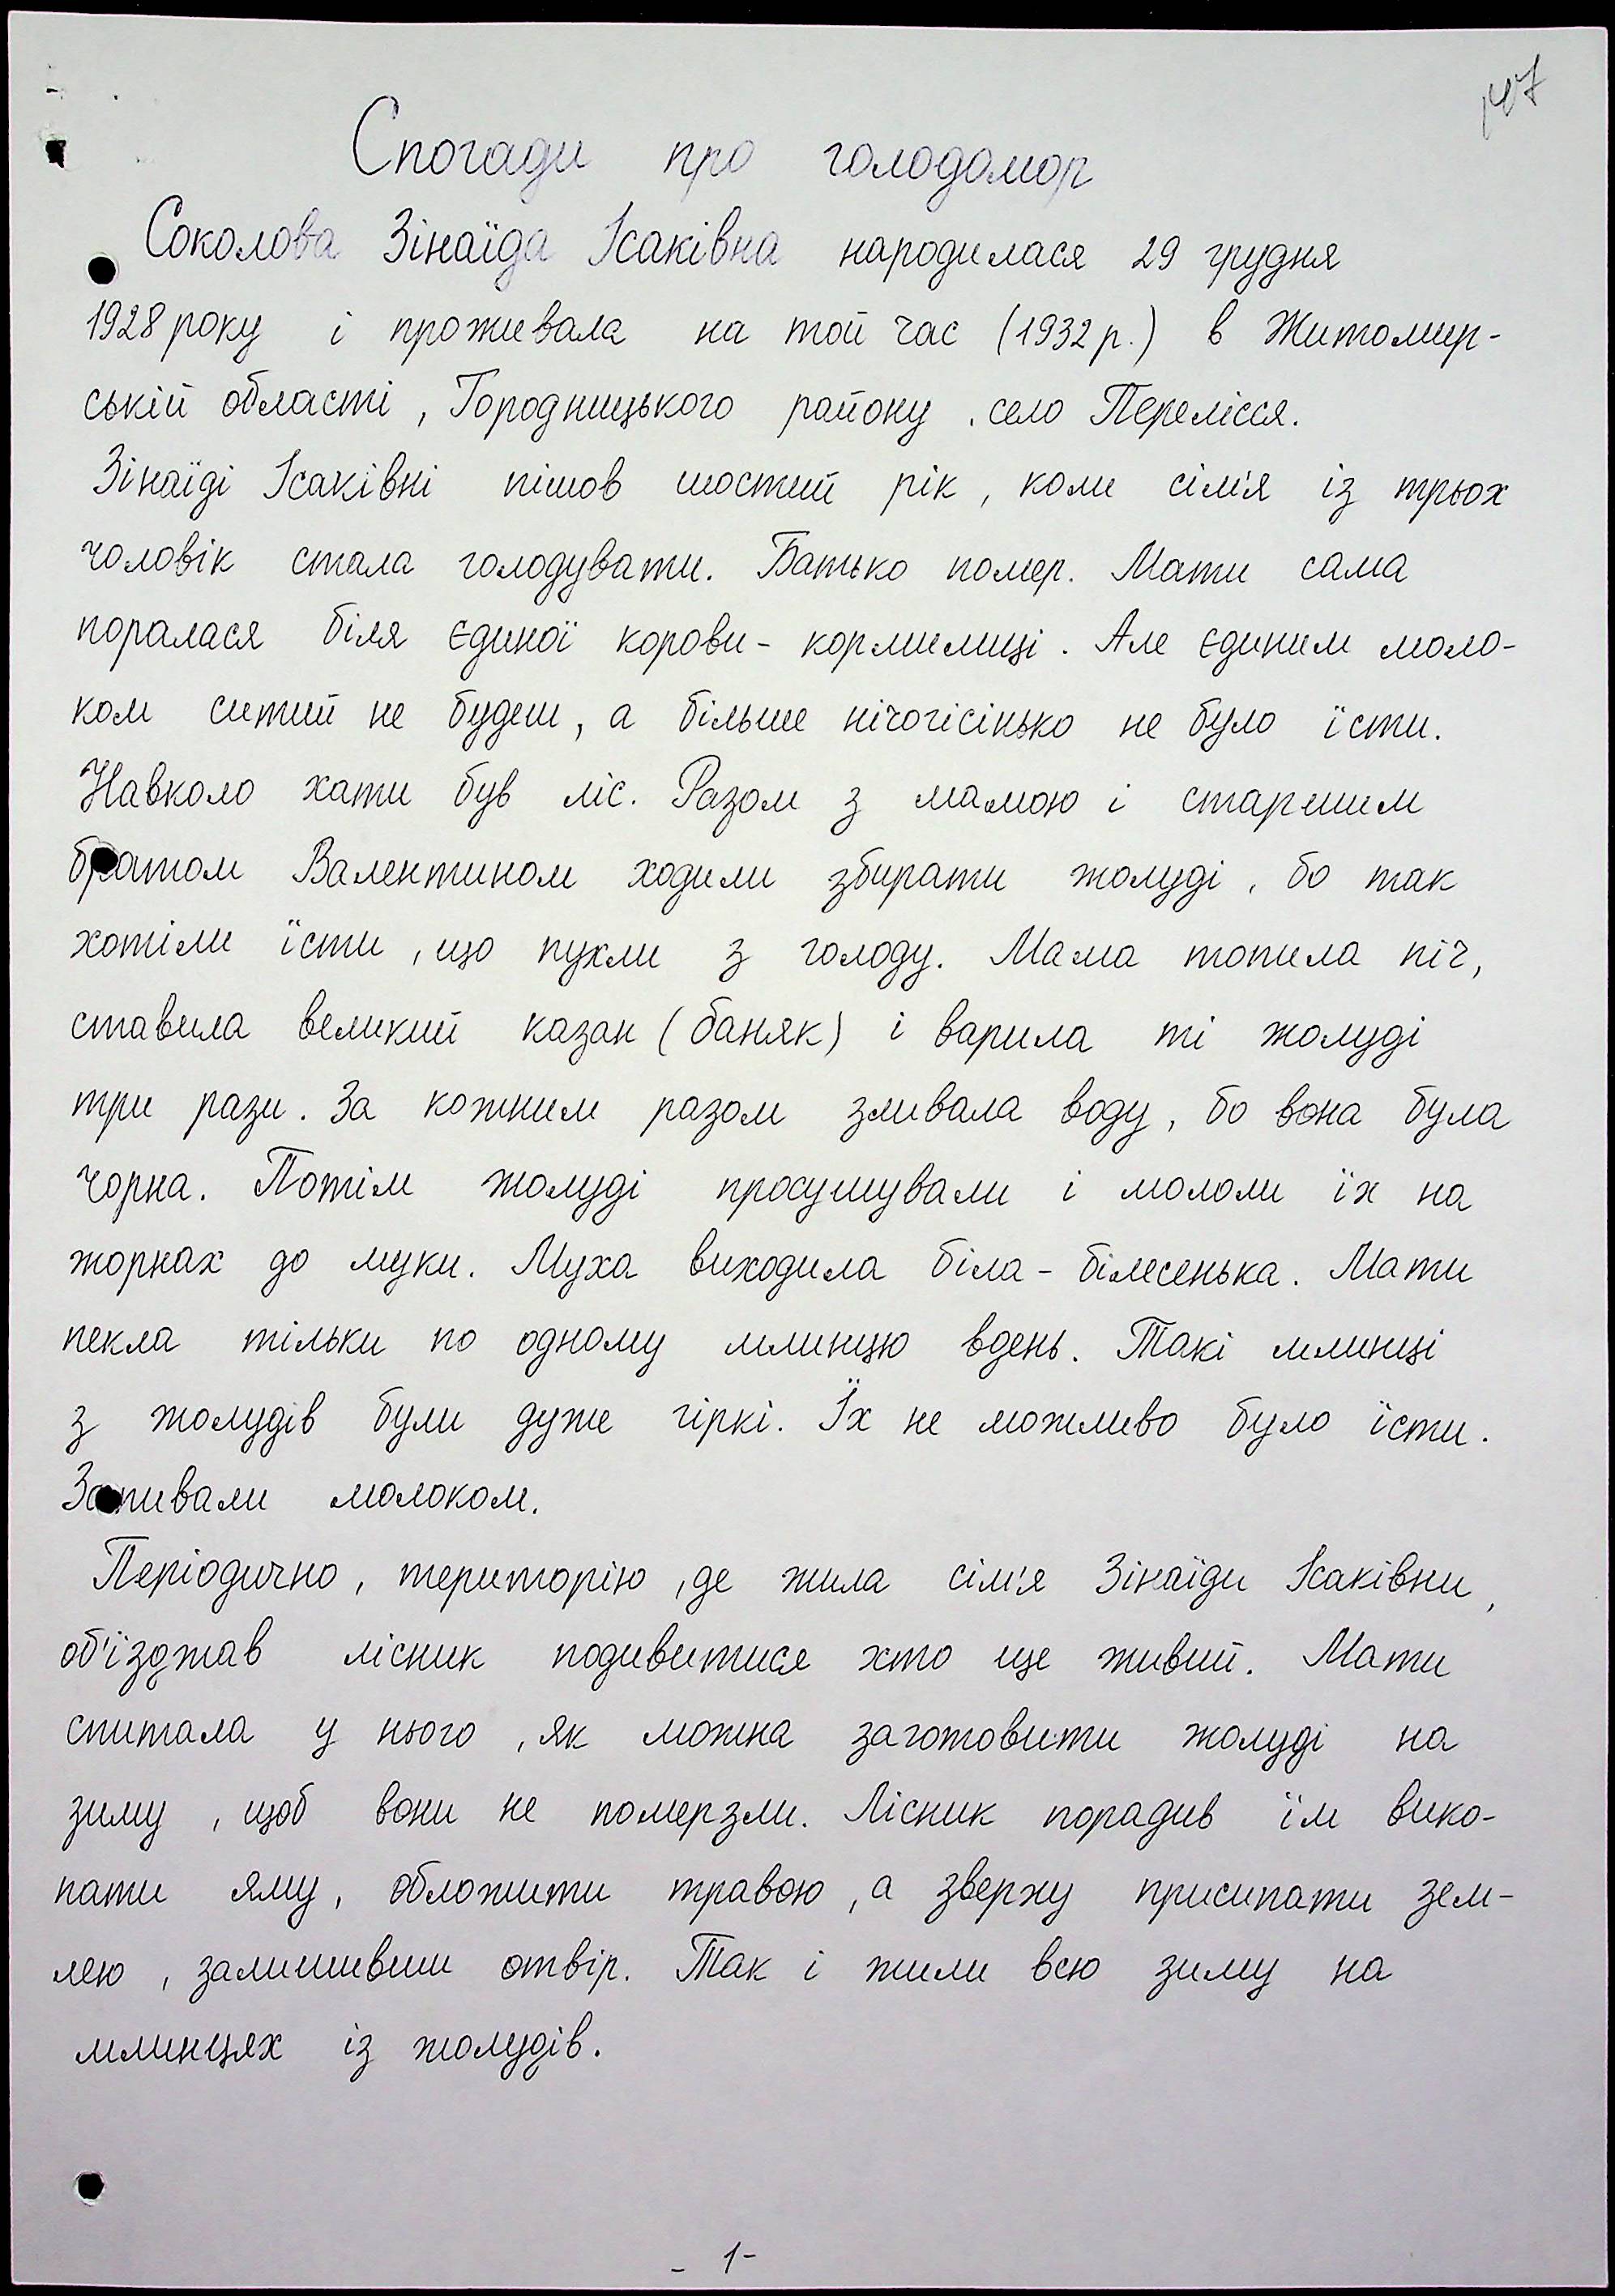 Спогади про голодомор
Соколова Зінаїда Ісаківна народилася 29 грудня
1928 року і проживала на той час (1932 р.) в Житомир-
ській області, Городницького району, село Перелісся.
Зінаїді Ісаківні пішов шостий рік, коли сім'я із трьох
чоловік стала голодувати. Батько помер. Мати сама
поралася біля єдиної корови-кормилиці. Але єдиним моло-
ком ситий не будеш, а більше нічогісінько не було їсти.
Навколо хати був ліс. Разом з мамою і старшим
братом Валентином ходили збирати жолуді, бо так
хотіли їсти, що пухли з голоду. Мама топила піч,
ставила великий казан (баняк) і варила ті жолуді
три рази. За кожним разом зливала воду, бо вона була
чорна. Потім жолуді просушували і мололи їх на
жорнах до муки. Муха виходила біла-білесенька. Мати
пекла тільки по одному млинцю вдень. Такі млинці
з жолудів були дуже гіркі. Їх не можливо було їсти.
Запивали молоком.
Періодично, територію, де жила сім'я Зінаїди Ісаківни,
об'їзджав лісник подивитися хто ще живий. Мати
спитала у нього, як можна заготовити жолуді на
зиму, щоб вони не померзли. Лісник порадив їм вико-
пати яму, обложити травою, а зверху присипати зем-
лею, залишивши отвір. Так і жили всю зиму на
млинцях із жолудів.
- 1 -